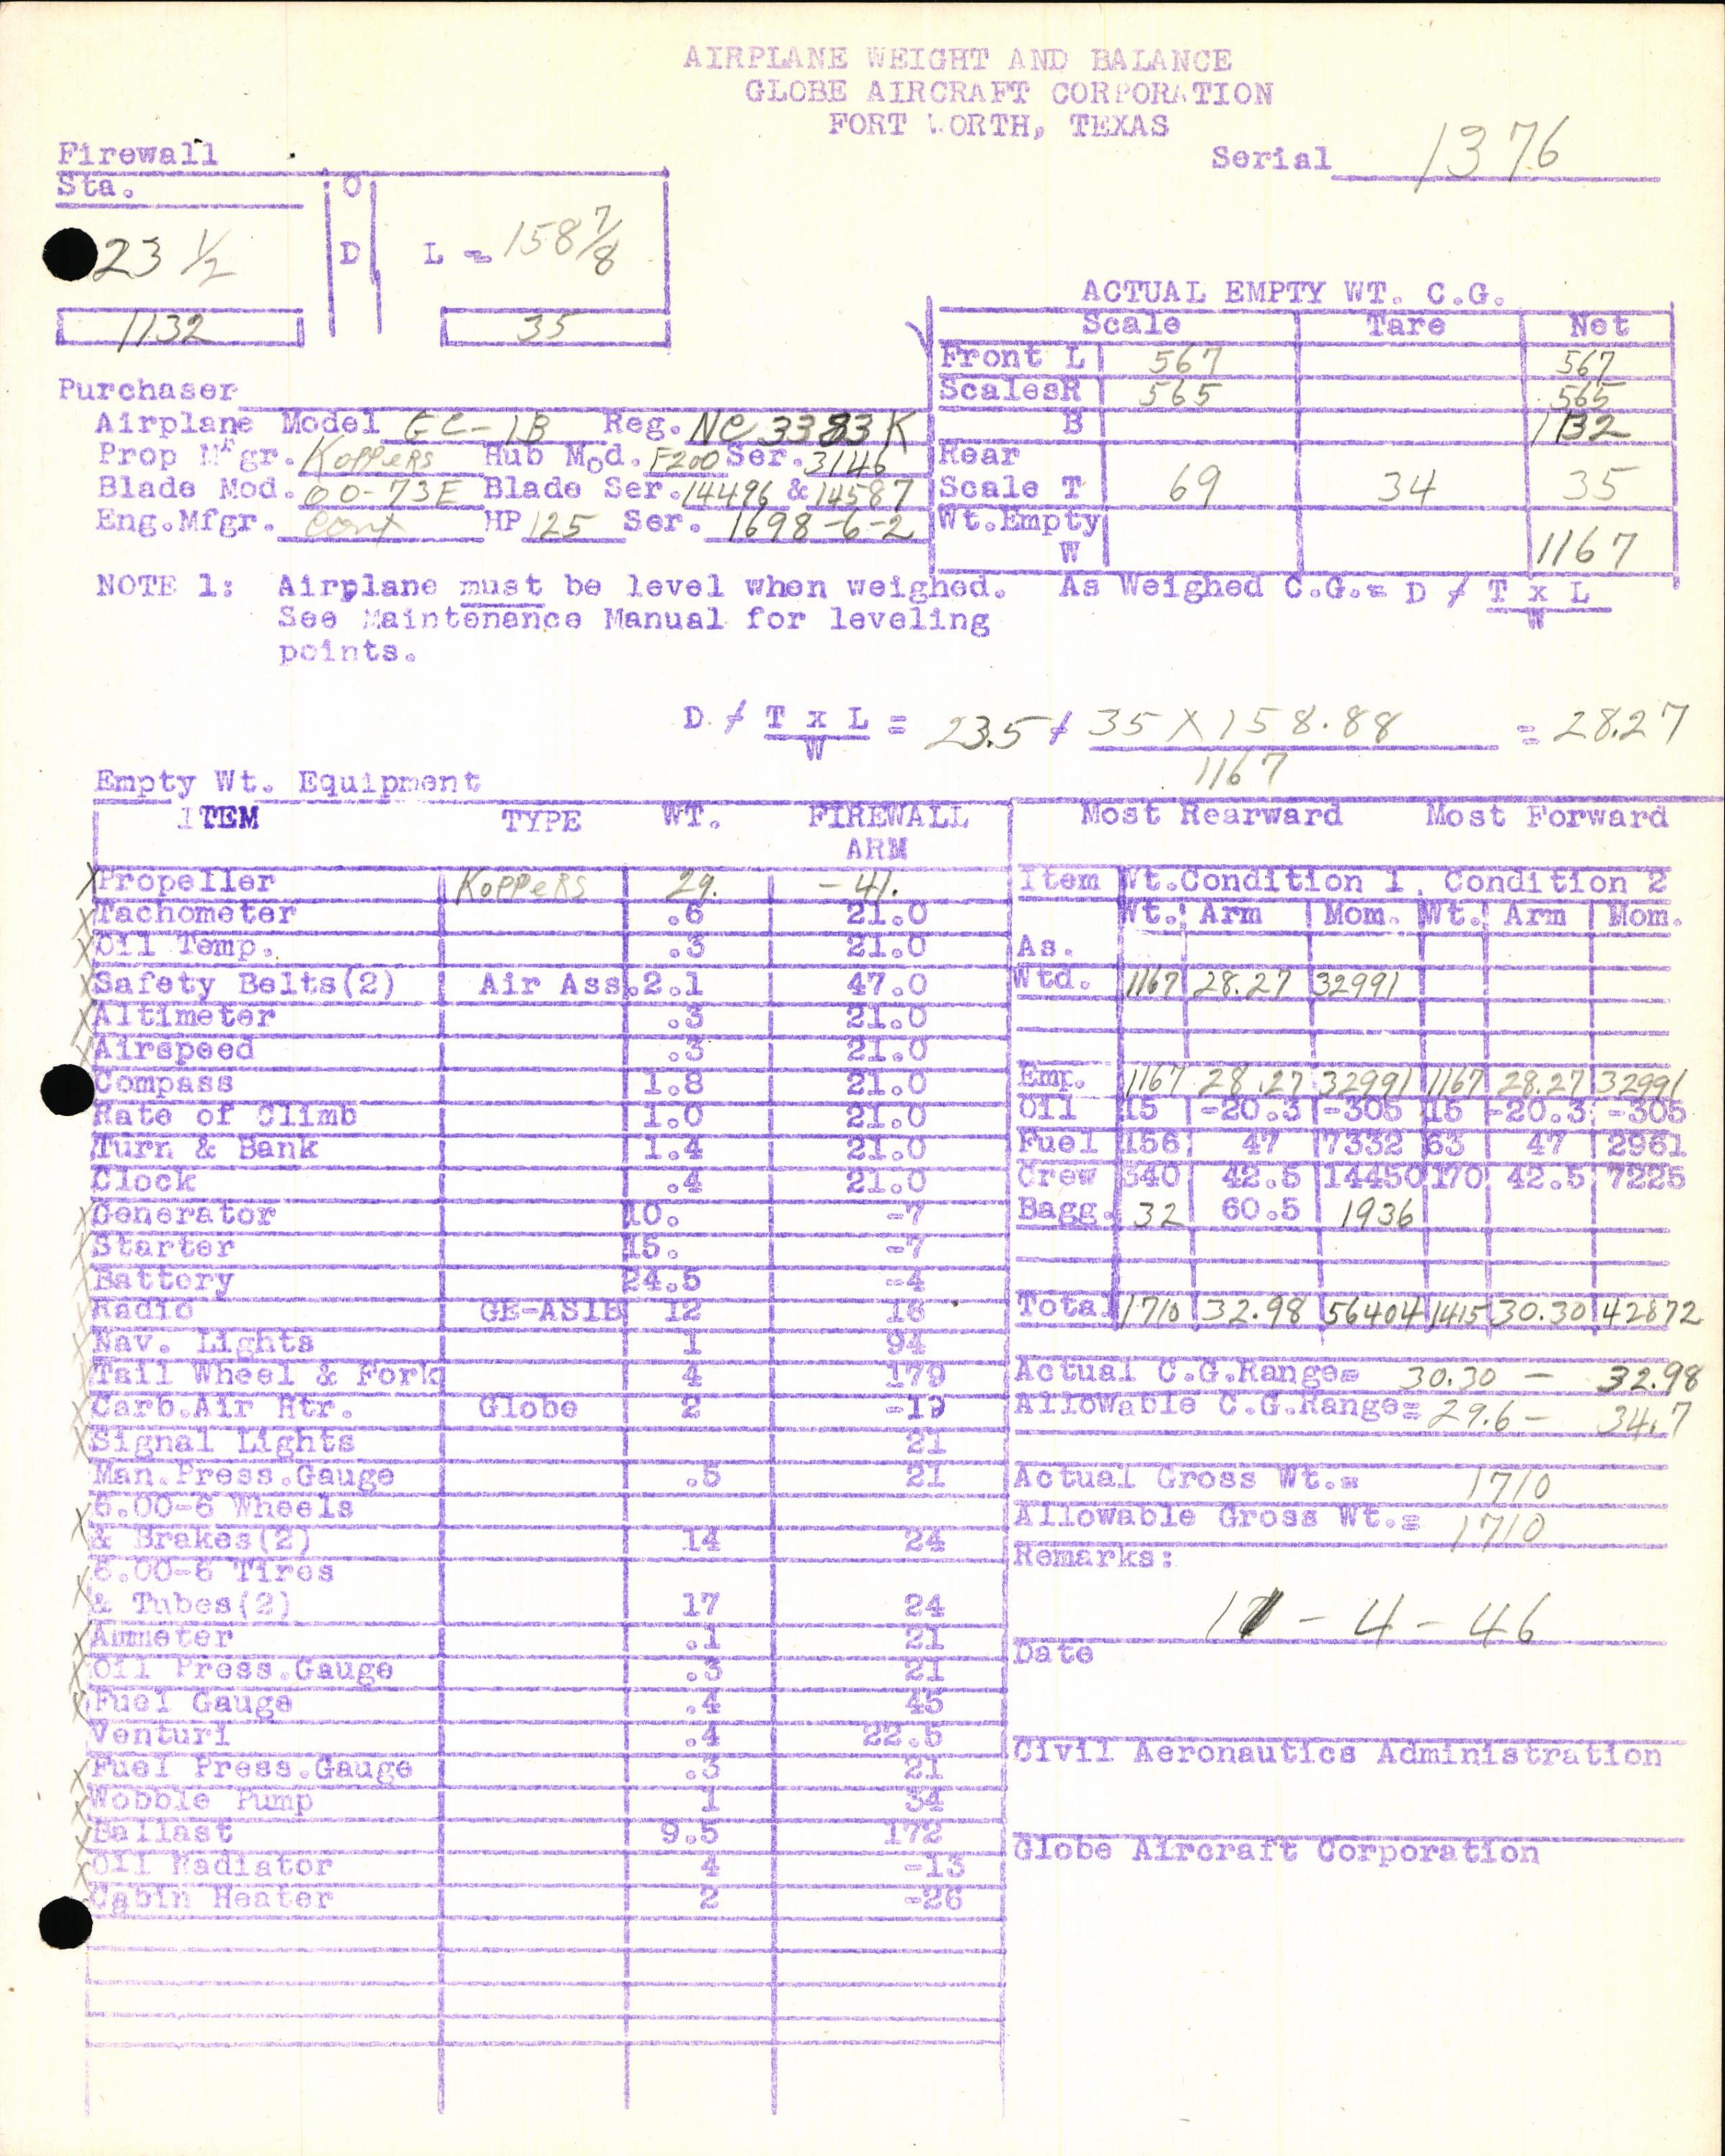 AIRPLANE WEIGHT AND BALANCE
GLOBE AIRCRAFT CORPORATION
FORT WORTH, TEXAS
Serial 1376
Firewall
Sta. O
23 1/2 D L = 158 7/8
1132 35
ACTUAL EMPTY WT. C.G.
Scale Tare Net
Front L 567 567
Scales R 565 565
B 1132
Rear
Scale T 69 34 35
Wt. Empty
W 1167
Purchaser
Airplane Model GC-1B Reg. NC 3383K
Prop Mfgr. Koppers Hub Mod. F200 Ser. 3146
Blade Mod. 00-73E Blade Ser. 14496 & 14587
Eng.Mfgr. Cont HP 125 Ser. 1698-6-2
NOTE 1: Airplane must be level when weighed. As Weighed C.G.= D / T x L
See Maintenance Manual for leveling W
points.
D / T x L = 23.5 / 35 X 158.88 = 28.27
W 1167
Empty Wt. Equipment
ITEM TYPE WT. FIREWALL
ARM
X Propeller Koppers 29. -41.
X Tachometer .6 21.0
X Oil Temp. .3 21.0
X Safety Belts(2) Air Ass. 2.1 47.0
X Altimeter .3 21.0
X Airspeed .3 21.0
Compass 1.8 21.0
Rate of Climb 1.0 21.0
Turn & Bank 1.4 21.0
Clock .4 21.0
X Generator 10. -7
X Starter 15. -7
X Battery 24.5 -4
X Radio GE-AS1B 12 16
X Nav. Lights 1 94
X Tail Wheel & Fork 4 179
X Carb.Air Htr. Globe 2 -19
X Signal Lights 21
Man.Press.Gauge .5 21
6.00-6 Wheels
X & Brakes(2) 14 24
6.00-6 Tires
X & Tubes(2) 17 24
X Ammeter .1 21
X Oil Press.Gauge .3 21
X Fuel Gauge .4 45
Venturi .4 22.5
X Fuel Press.Gauge .3 21
X Wobble Pump 1 34
X Ballast 9.5 172
X Oil Radiator 4 -13
Cabin Heater 2 -26
Most Rearward Most Forward
Item Wt. Condition 1. Condition 2
Wt. Arm Mom. Wt. Arm Mom.
As.
Wtd. 1167 28.27 32991
Emp. 1167 28.27 32991 1167 28.27 32991
Oil 15 -20.3 -305 15 -20.3 -305
Fuel 156 47 7332 63 47 2961
Crew 340 42.5 14450 170 42.5 7225
Bagg. 32 60.5 1936
Total 1710 32.98 56404 1415 30.30 42872
Actual C.G.Range= 30.30 - 32.98
Allowable C.G.Range= 29.6 - 34.7
Actual Gross Wt.= 1710
Allowable Gross Wt.= 1710
Remarks:
11 - 4 - 46
Date
Civil Aeronautics Administration
Globe Aircraft Corporation